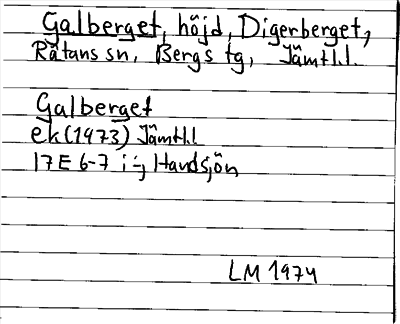 Galberget, höjd, Digerberget,
Råtans sn, Bergs tg, Jämtl.l.
Galberget
ek (1973) Jämtl.l
17E 6-7 i-j Handsjön
LM 1974